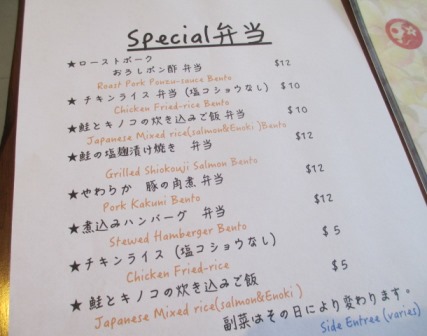 Special弁当
★ローストポーク
おろしポン酢 弁当 $12
Roast Pork Ponzu-sauce Bento
★チキンライス 弁当 (塩コショウなし) $10
Chicken Fried-rice Bento
★鮭とキノコの炊き込みご飯 弁当 $10
Japanese Mixed rice(salmon&Enoki )Bento
★鮭の塩麹漬け焼き 弁当 $12
Grilled Shiokouji Salmon Bento
★やわらか 豚の角煮 弁当 $12
Pork Kakuni Bento
★煮込みハンバーグ 弁当 $12
Stewed Hamberger Bento
★チキンライス (塩コショウなし) $5
Chicken Fried-rice
★鮭とキノコの炊き込みご飯 $5
Japanese Mixed rice(salmon&Enoki )
副菜はその日により変わります。
Side Entree (varies)